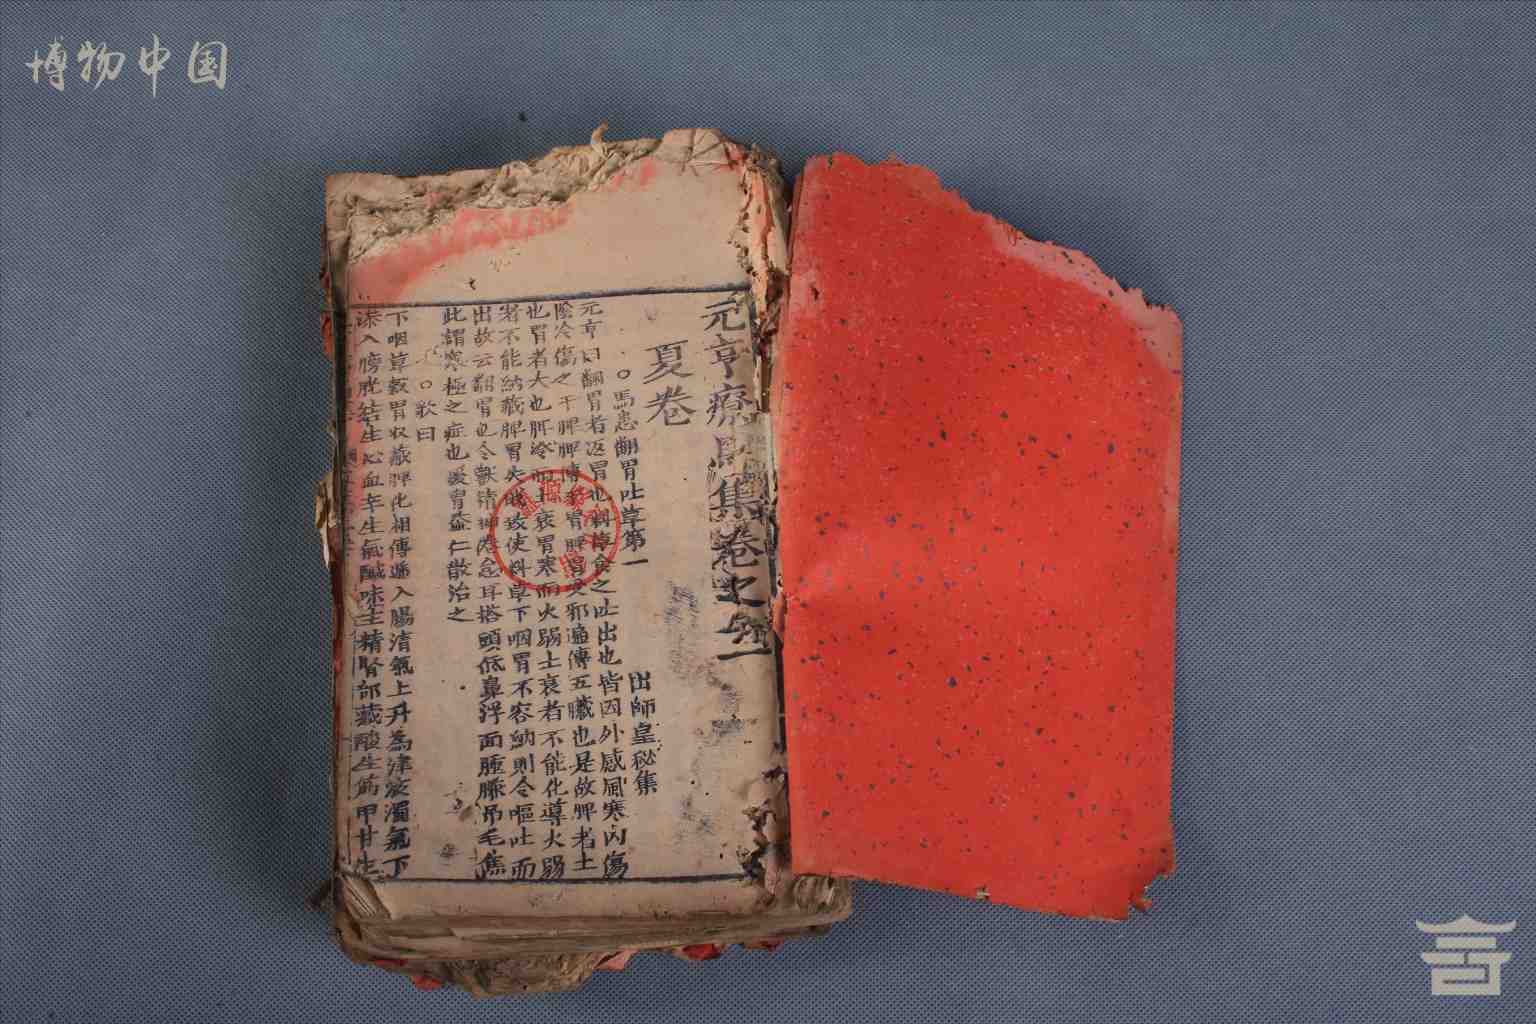 博物中国
元亨療馬集卷之
夏卷
○馬患翻胃吐草第一
出師皇秘集
元亨曰翻胃者返胃也料草食之吐出也皆因外感風寒內傷
陰冷傷之于脾脾傳于胃脾胃受邪遍傳五臟也是故脾者土
也胃者大也脾冷而土衰胃寒而火弱土衰者不能化導火弱
者不能納藏脾胃失職致使料草下咽胃不容納則令嘔吐而
出故云翻胃也令獸精神倦怠耳搭頭低鼻浮面腫䐁吊毛焦
此謂寒極之症也暖胃益仁散治之
○歌曰
下咽草穀胃收藏脾化相傳遞入腸清氣上升為津液濁氣下
滲入膀胱結生心血辛生氣鹹味生精腎部藏酸生筋甲甘生